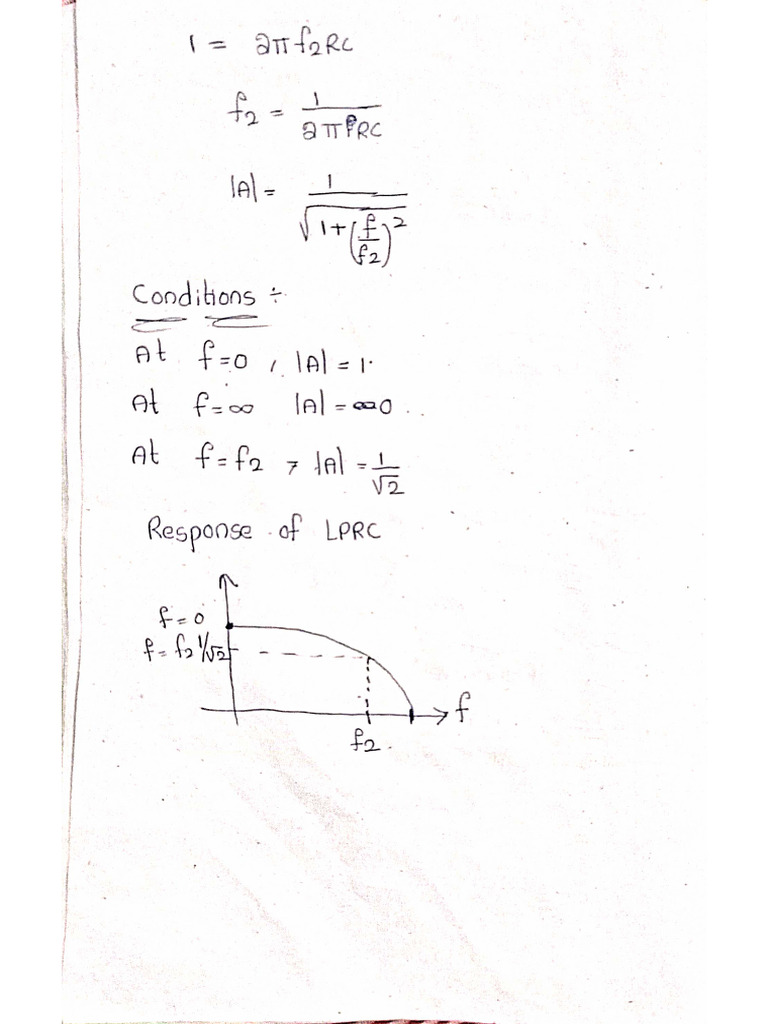 1 = 2πf₂RC
f₂ = 1/2πRC
|A| = 1/√1+(f/f₂)²
Conditions ÷
At f=0, |A| = 1.
At f=∞ |A| = 0
At f=f₂, |A| = 1/√2
Response of LPRC
f=0
f=f₂ 1/√2
f
f₂.